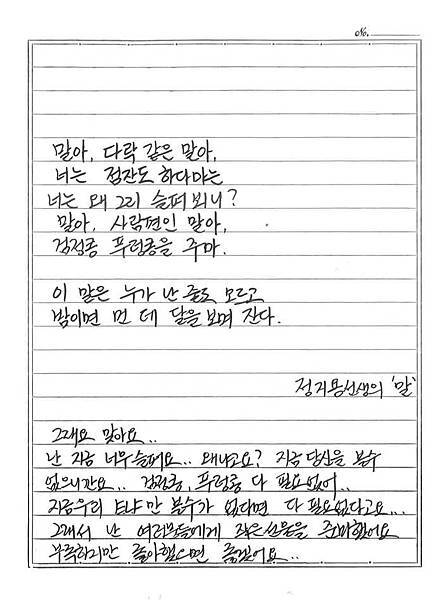 No.
말아, 다락 같은 말아,
너는 점잔도 하다마는
너는 왜 그리 슬퍼 뵈니?
말아, 사람편인 말아,
검정콩 푸렁콩을 주마.
이 말은 누가 난 줄도 모르고
밤이면 먼 데 달을 보며 잔다.
정지용선생의 '말'
그래요 맞아요..
난 지금 너무 슬퍼요.. 왜냐고요? 지금 당신을 볼수
없으니깐요.. 검정콩, 푸렁콩 다 필요없어..
지금 우리 만 볼수가 없다면 다 필요없다고요...
그래서 난 여러분들에게 작은선물을 준비했어요
부족하지만 좋아했으면 좋겠어요..